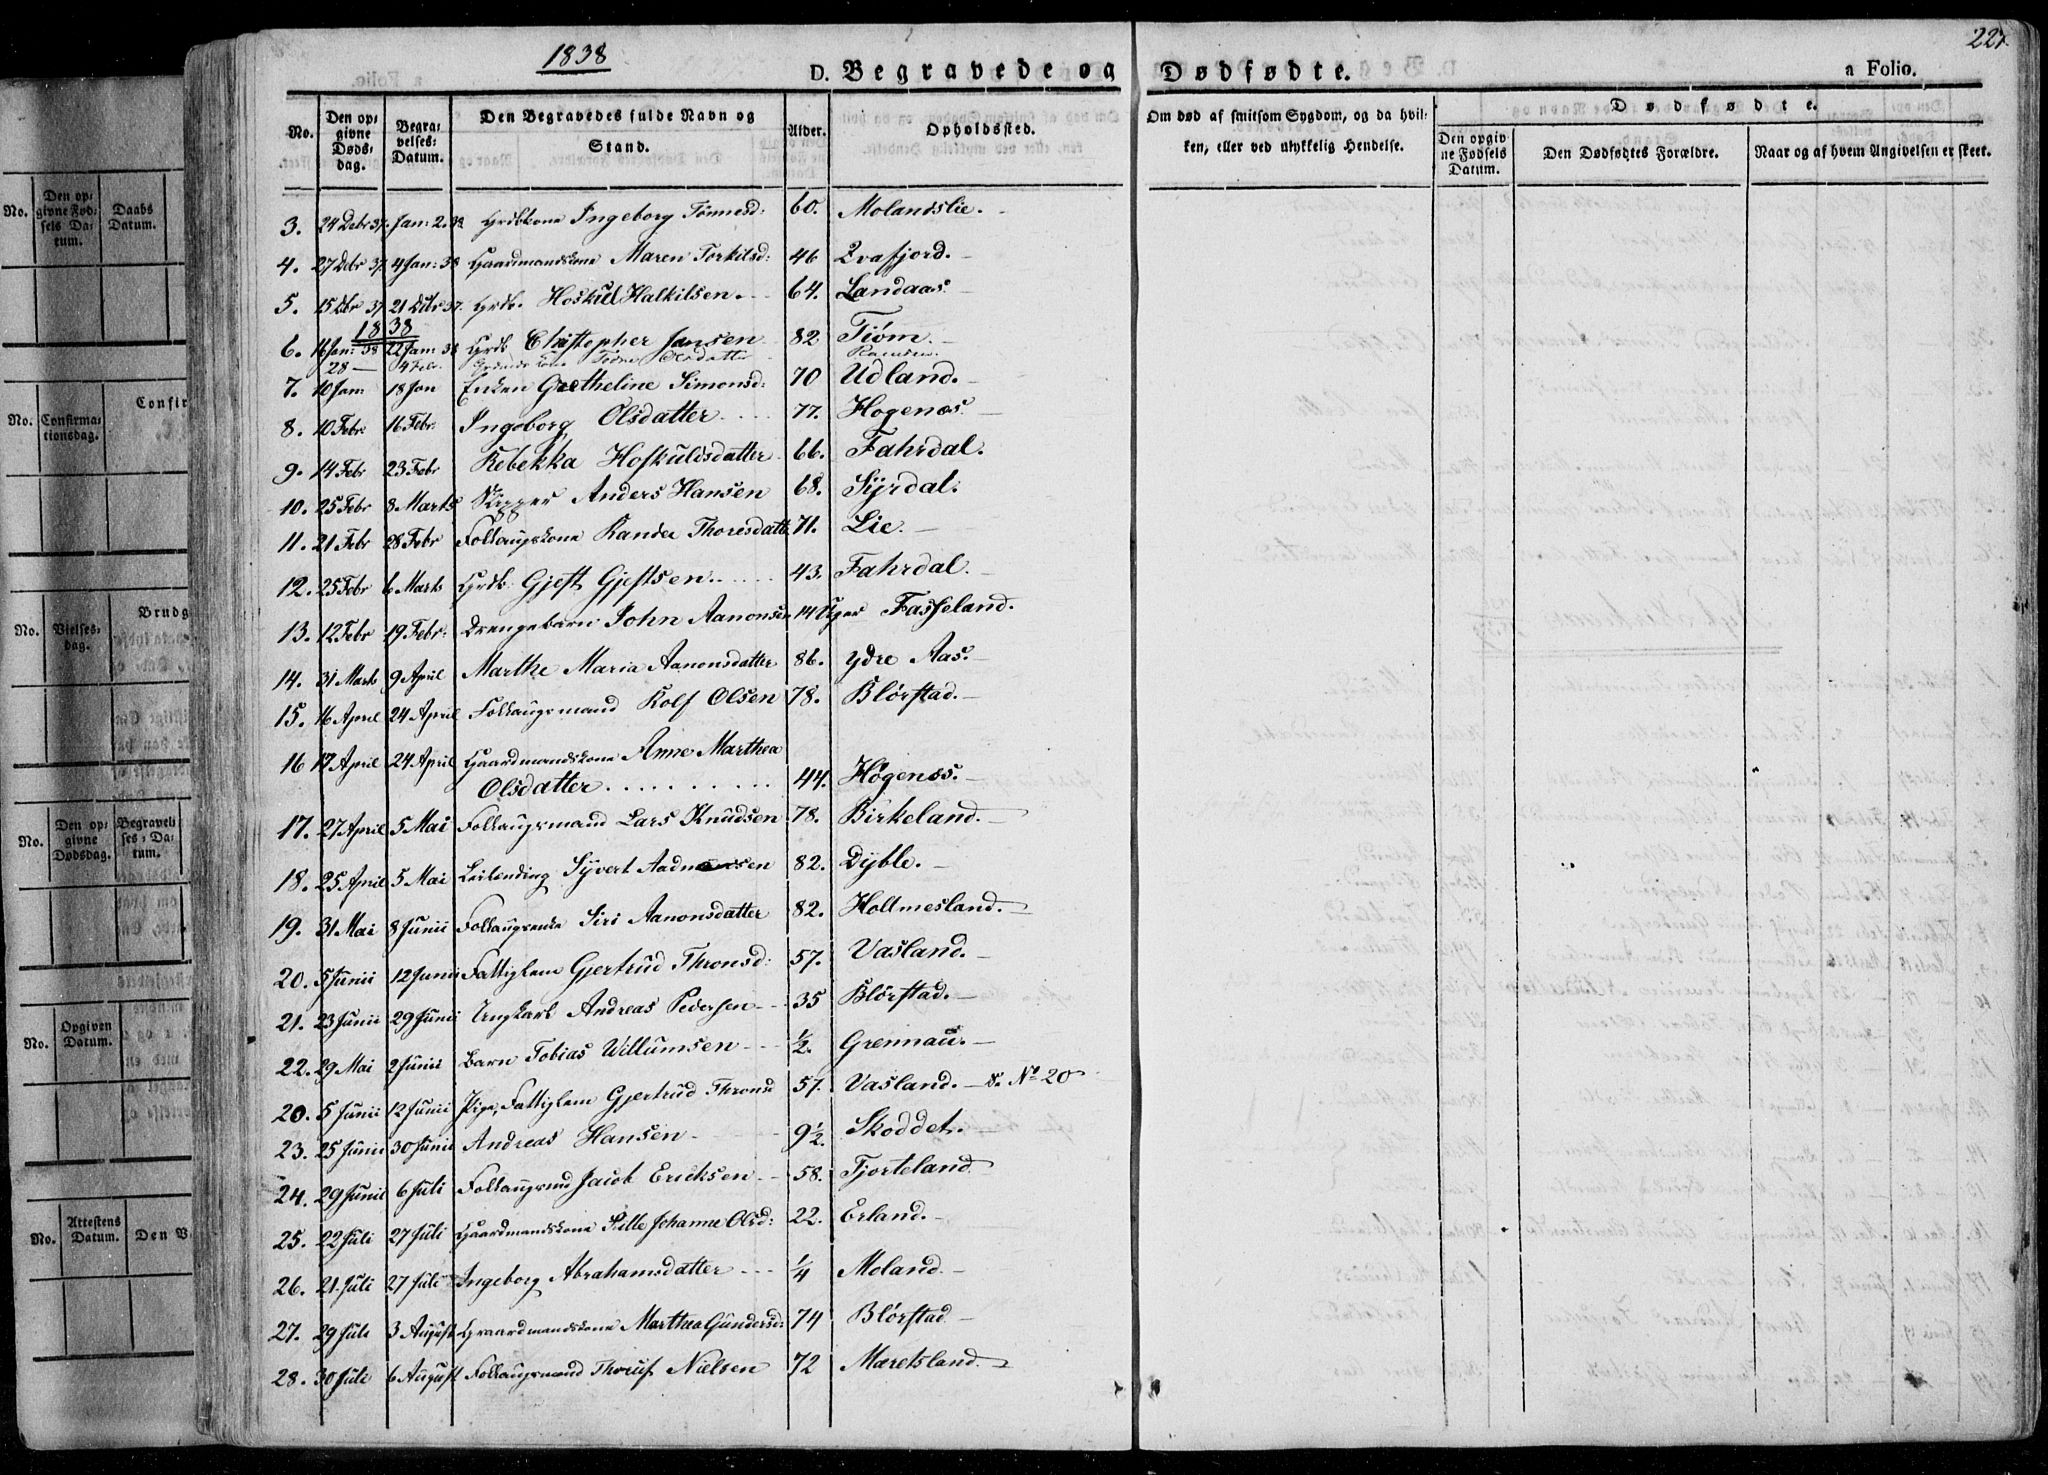 1838
221
D. Begravede og Dødfødte.
a Folio.
No.
Den opgivne Dødsdag.
Begravelses-Datum.
Den Begravedes fulde Navn og Stand.
Alder.
Opholdssted.
Om død af smitsom Sygdom, og da hvilken, eller ved ulykkelig Hendelse.
Dødfødte.
Den opgivne Fødsels Datum.
Den Dødfødtes Forældre.
Naar og af hvem Angivelsen er skeet.
3. 24 Debr 37. Jan: 2. 38 Grdbkone Ingeborg Tønnesd: 60. Molandslie.
4. 27 Debr 37 4 Jan: 38 Gaardmandskone Maren Torkilsd: 46 Qvafjord.
5. 15 Dbr 37 21 Dbr 37. Grdb. Hoskul Halkilsen. 64. Landaas
1838
6. 16 Jan: 38 22 Jan: 38 Grdb Christopher Jansen 82 Tiøm.
28 — 4 Febr.
7. 10 Jan 18 Jan Enken Gretheline Simonsd: 70 Udland.
8. 10 Febr: 16 Febr: Ingeborg Olsdatter 77. Hogenæs.
9. 14 Febr 23 Febr Rebekka Hoskuldsdatter 66. Fahrdal.
10. 25 Febr 8 Marts Skipper Anders Hansen 68. Syrdal.
11. 21 Febr 28 Febr Follaugskone Randee Thoresdatt 71. Lie.
12. 25 Febr 6 Marts Grdb. Gjest Gjestsen. 43. Fahrdal.
13. 12 Febr 19 Febr: Drengebarn John Aanonsen 14 Uger Fasseland.
14. 31 Marts 9 April Marthe Maria Aanonsdatter 86. ydre Aas.
15. 16 April 24 April Follaugsmand Rolf Olsen 78. Blørstad.
16 17 April 24 April Gaardmandskone Anne Marthea
Olsdatter 44. Høgenæs.
17. 27 April 5 Mai Follaugsmand Lars Knudsen 78. Birkeland.
18. 25 April 5 Mai Leilending Syvert 82. Dyble.
19. 31 Mai 8 Junii Follaugsenke Siri Aanonsdatter 82. Holtmesland.
20. 5 Junii 12 Junii Fattiglem Gjertrud Thronsd: 57. Vasland.
21. 23 Junii 29 Junii Ungkarl Andreas Pedersen 35 Blørstad.
22. 29 Mai 2 Junii Barn Tobias Willumsen ½. Grennau.
20. 5 Junii 12 Junii Pige, Fattiglem Gjertrud Thronsd 57. Vasland. — s. No 20
23. 25 Junii 30 Junii Andreas Hansen 9½. Skoddet.
24. 29 Junii 6 Juli Follaugsmd Jacob Ericksen 58. Tjorteland
25. 22 Juli 27 Juli Gaardmandskone Sille Johanne Olsd: 22. Erland.
26. 21 Juli 27 Juli Ingeborg Abrahamsdatter ¼ Moland
27. 29 Juli 3 August Gaardmandskone Marthea Gundersd: 74 Blørstad
28. 30 Juli 6 August Follaugsmand Nielsen 72 Mæretsland
No.
Den opgivne Fødsels Datum.
Daabs Datum.
No.
Confirmationsdag.
Confir
No.
Vielsesdag.
Brudg
No.
Den opgivne Dødsdag.
Begravelses-Datum.
No.
Opgiven Datum.
No.
Attestens Datum.
Den V